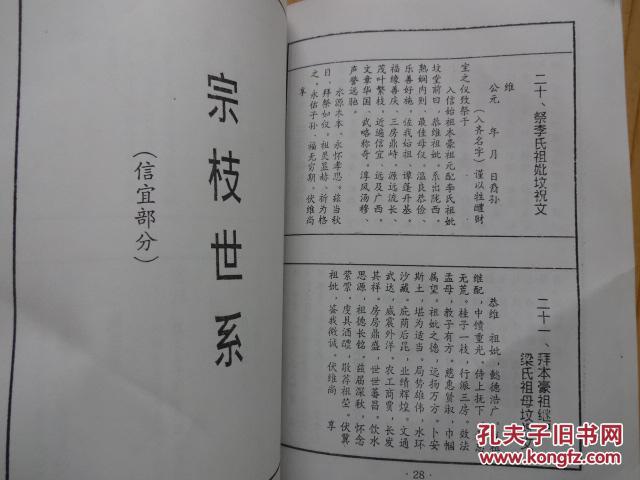 宗枝世系
（信宜部分）
二十、祭李氏祖妣坟祝文
维
公元　年　月　日裔孙
（入齐名字）谨以牲醴财
宝之仪致祭于
入信始祖本豪祖元配李氏祖妣
坟堂前曰，恭维祖妣，系出陇西，
熟娴内则，最佳母仪，温良恭俭，
乐善好施，佐我始祖，谭蓬开基，
福缘善庆，三房鼎峙，源远流长，
茂叶繁枝，近遍信宜，远及广西，
文章华国，武略称奇，淳风汤穆，
声誉远驰。
水源木本，永怀孝思，兹当秋
日，拜祭如仪，祖灵显赫，祈为格
之，永佑子孙，福无穷期，伏维尚
享
二十一、拜本豪祖继
梁氏祖母坟
恭维　祖妣，懿德浩广，
继配，中馈重光。待上抚下
无荒。桂子一枝，行派三房。效法
孟母，教子有方。慈惠贤淑，巾帼
属望。祖妣之德，远扬万方。卜安
斯土，堪为适当。局势雄伟，水环
沙藏。庇荫后昆，业绩辉煌。文通
武达，威震外洋。农工商贾，长发
其祥。房房鼎盛，世世蕃昌。饮水
思源，祖德长铭。兹届深秋，怀念
萦萦。虔具酒礼，敬荐祖茔。伏冀
祖妣，鉴我微诚。伏维尚　享
·28·
孔夫子旧书网
KONGFZ.COM